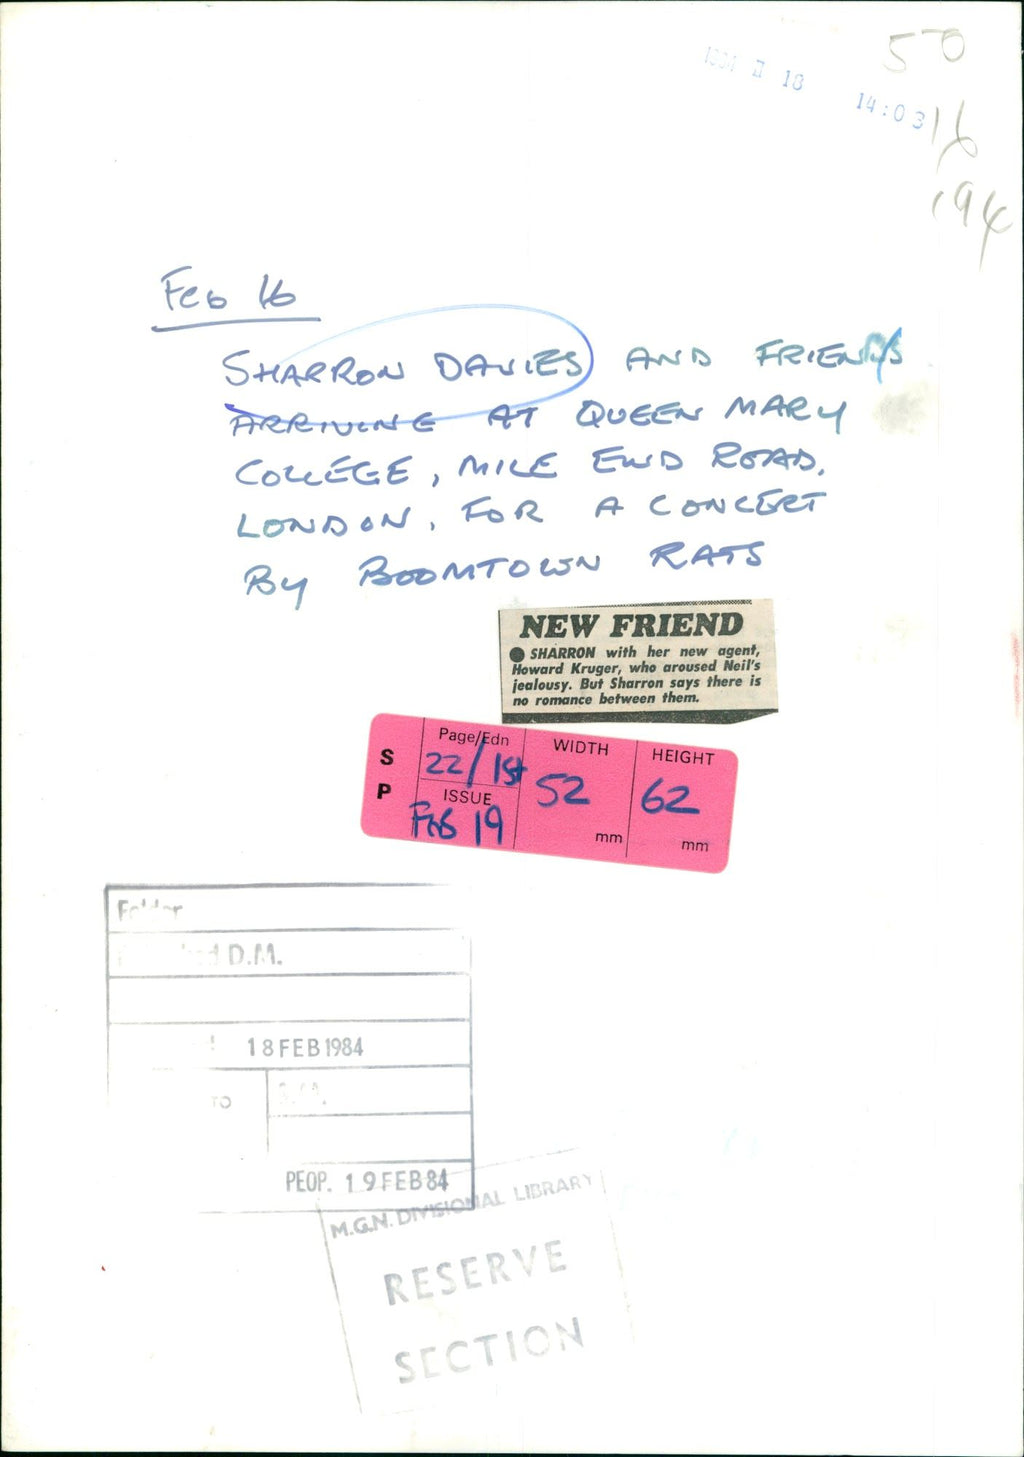 50
18
14:03
16
194
Feb 16
SHARRON DAVIES AND FRIENDS
ARRIVING AT QUEEN MARY
COLLEGE, MILE END ROAD,
LONDON, FOR A CONCERT
BY BOOMTOWN RATS
NEW FRIEND
● SHARRON with her new agent,
Howard Kruger, who aroused Neil's
jealousy. But Sharron says there is
no romance between them.
S P
Page/Edn
22/1st
WIDTH
52
mm
HEIGHT
62
mm
ISSUE
Feb 19
Folder
D.M.
18 FEB 1984
TO
PEOP. 19 FEB 84
M.G.N. DIVISIONAL LIBRARY
RESERVE
SECTION